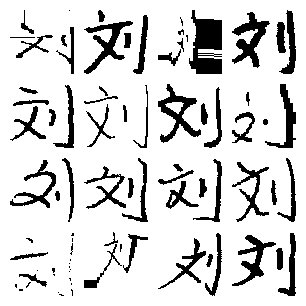 刘刘刘刘
刘刘刘刘
刘刘刘刘
刘刘刘刘